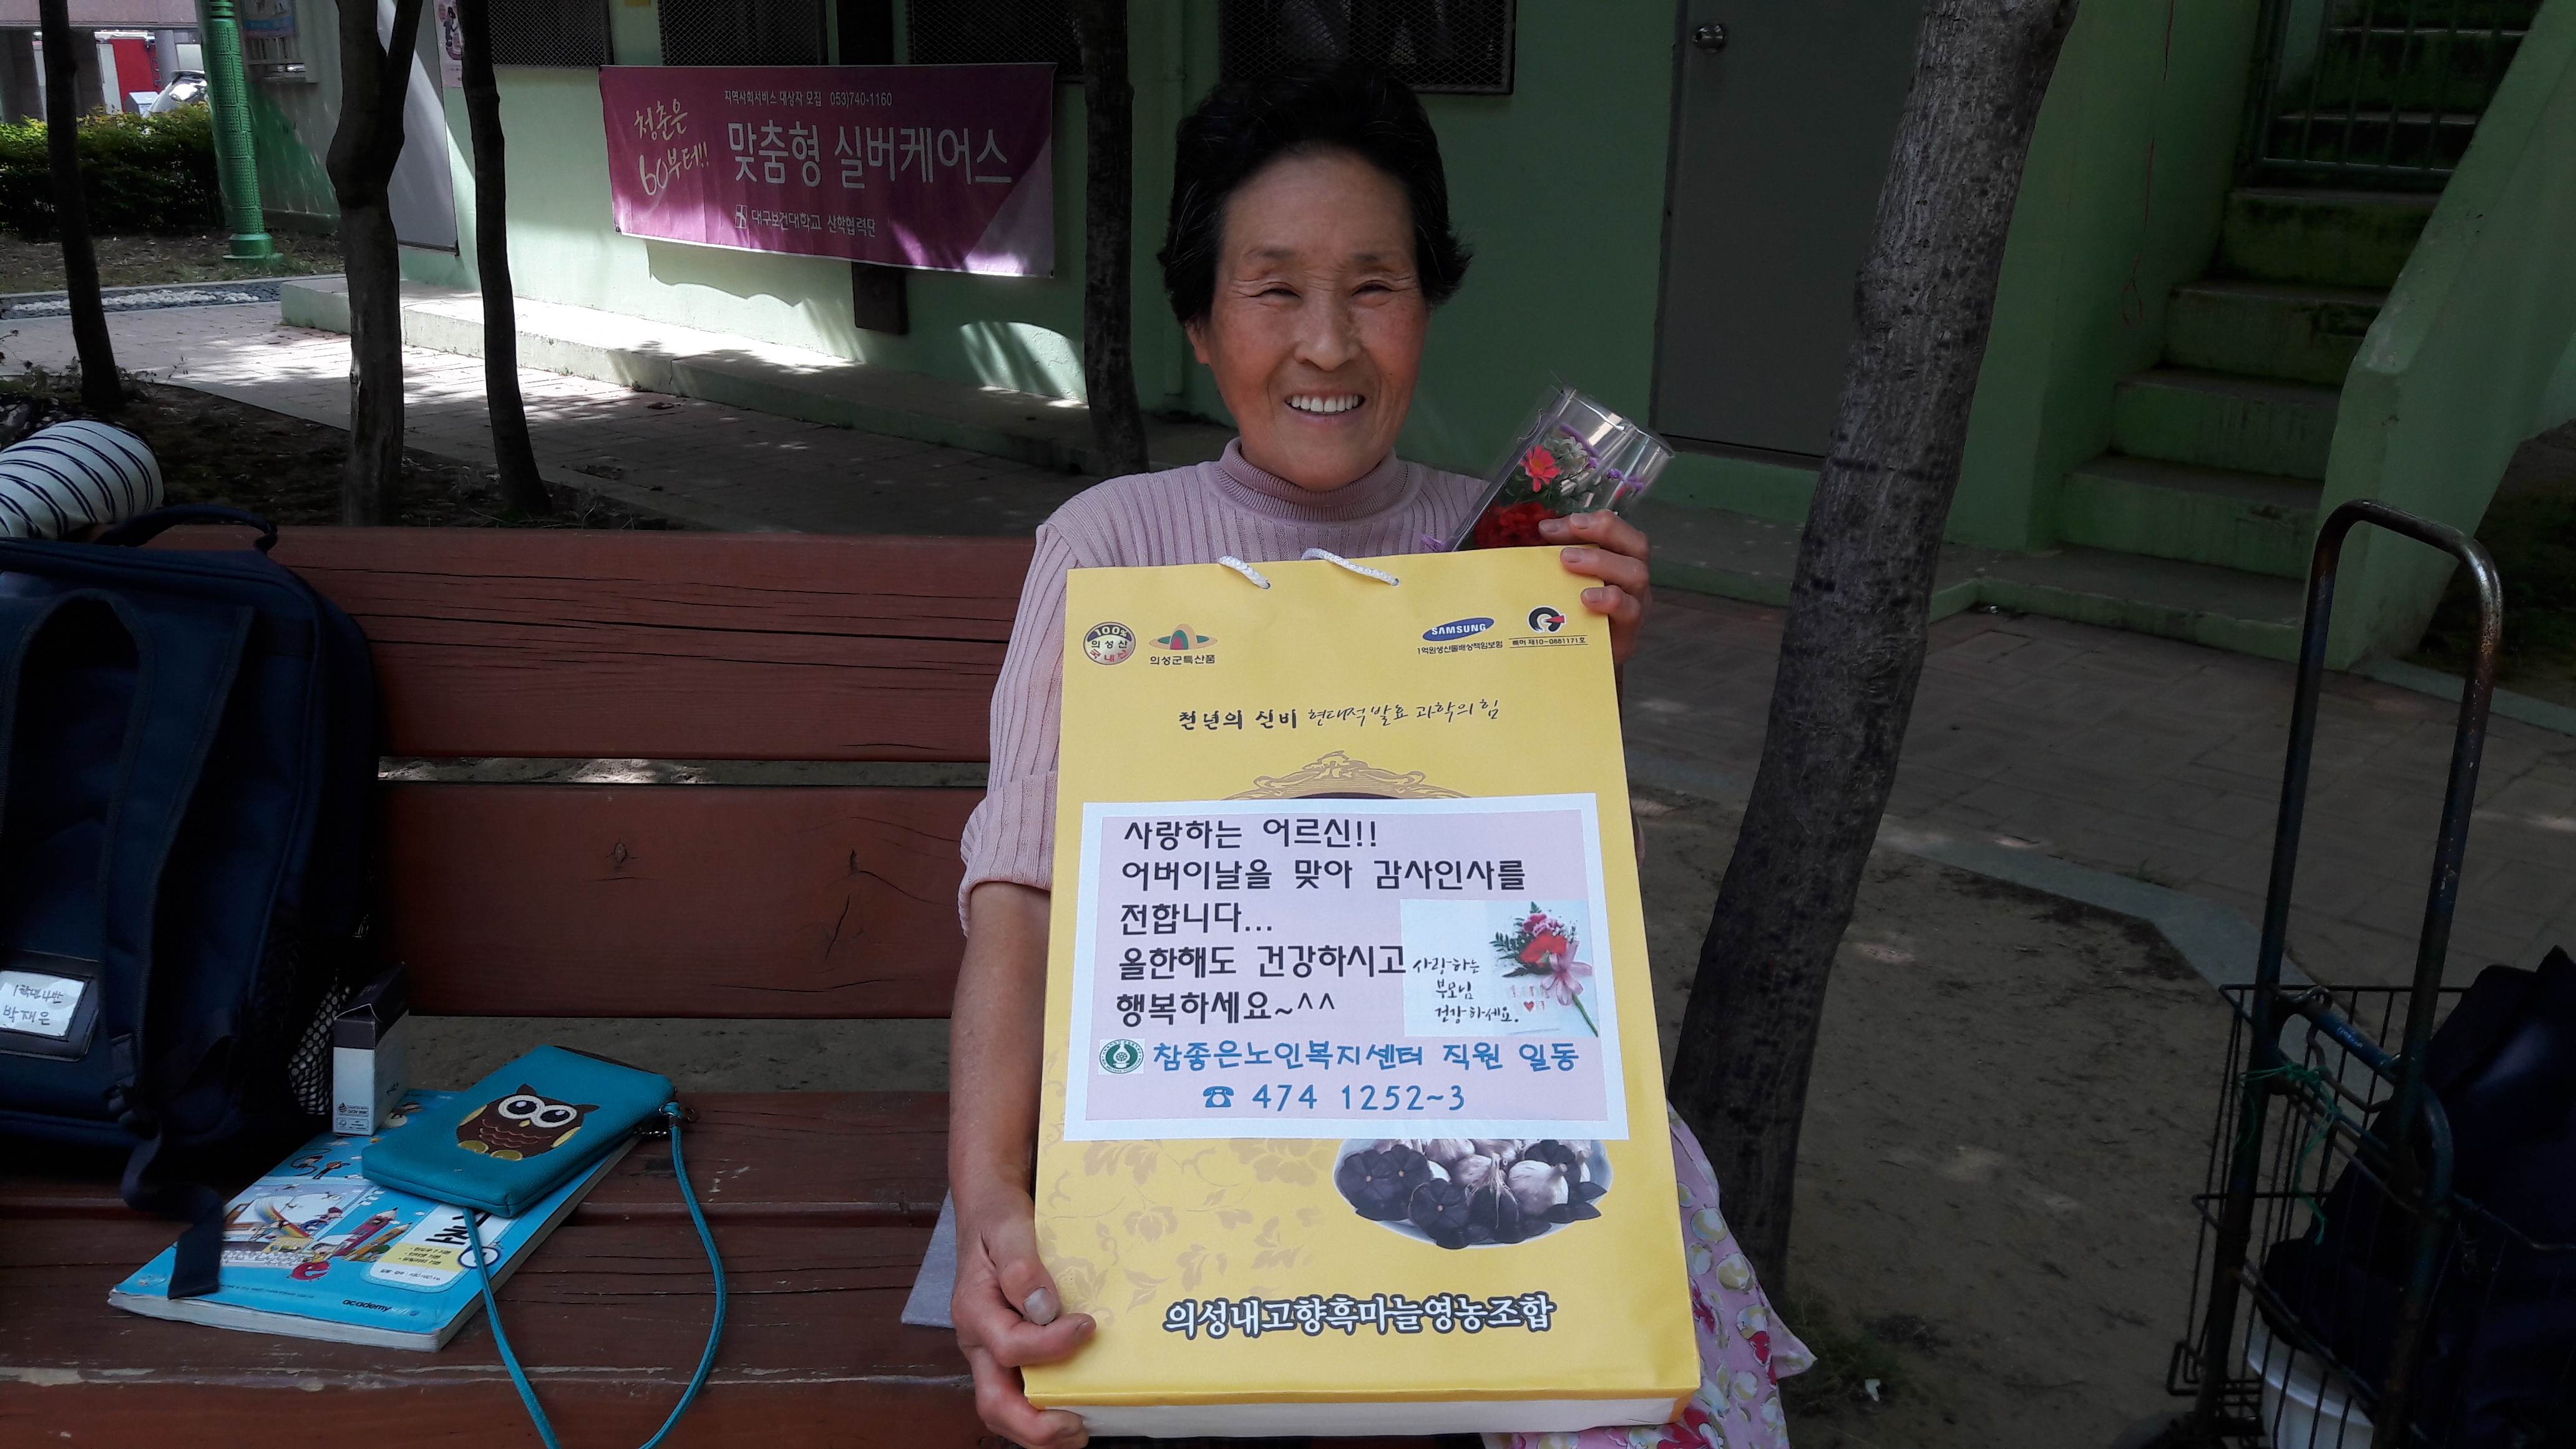 지역사회서비스 대상자 모집 053)740-1160
청춘은
60부터!!
맞춤형 실버케어스
대구보건대학교 산학협력단
100%
의성산
국내산
의성군특산품
SAMSUNG
1억원생산물배상책임보험
특허 제10-0881171호
천년의 신비 현대적 발효 과학의 힘
사랑하는 어르신!!
어버이날을 맞아 감사인사를
전합니다...
올한해도 건강하시고
행복하세요~^^
사랑하는
부모님
건강하세요.
참좋은노인복지센터 직원 일동
☎ 474 1252~3
의성내고향흑마늘영농조합
1학년4반
박재은
academy